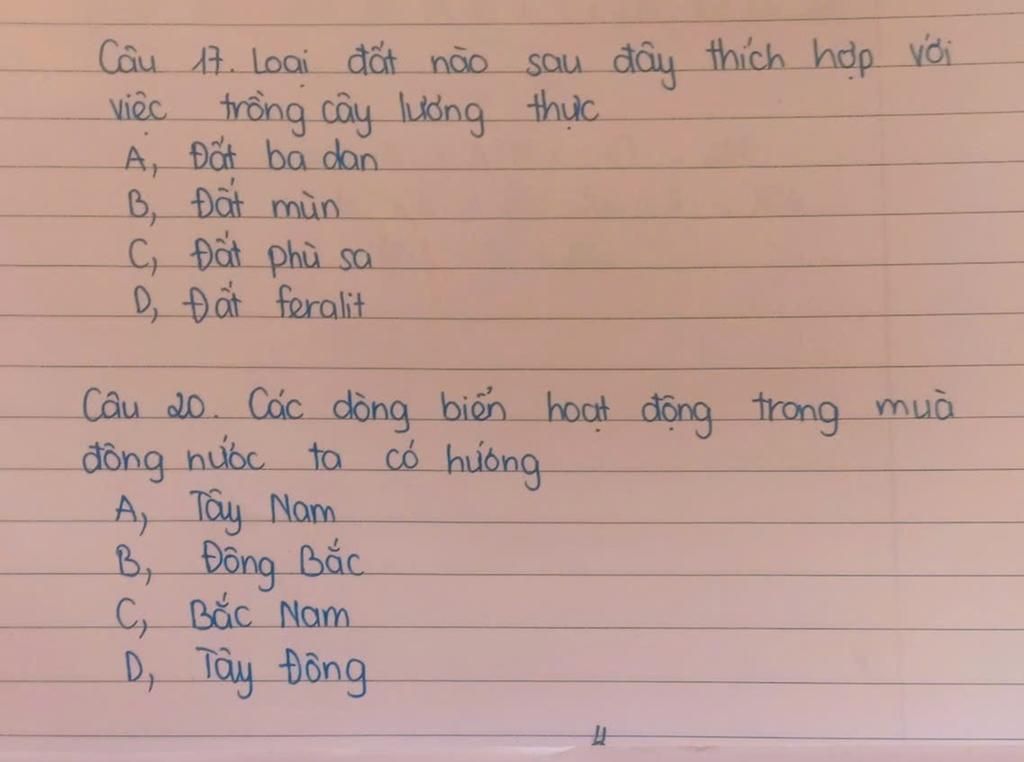 Câu 17. Loại đất nào sau đây thích hợp với
việc trồng cây lương thực
A, Đất ba dan
B, Đất mùn
C, Đất phù sa
D, Đất feralit
Câu 20. Các dòng biển hoạt động trong muà
đông nước ta có hướng
A, Tây Nam
B, Đông Bắc
C, Bắc Nam
D, Tây Đông